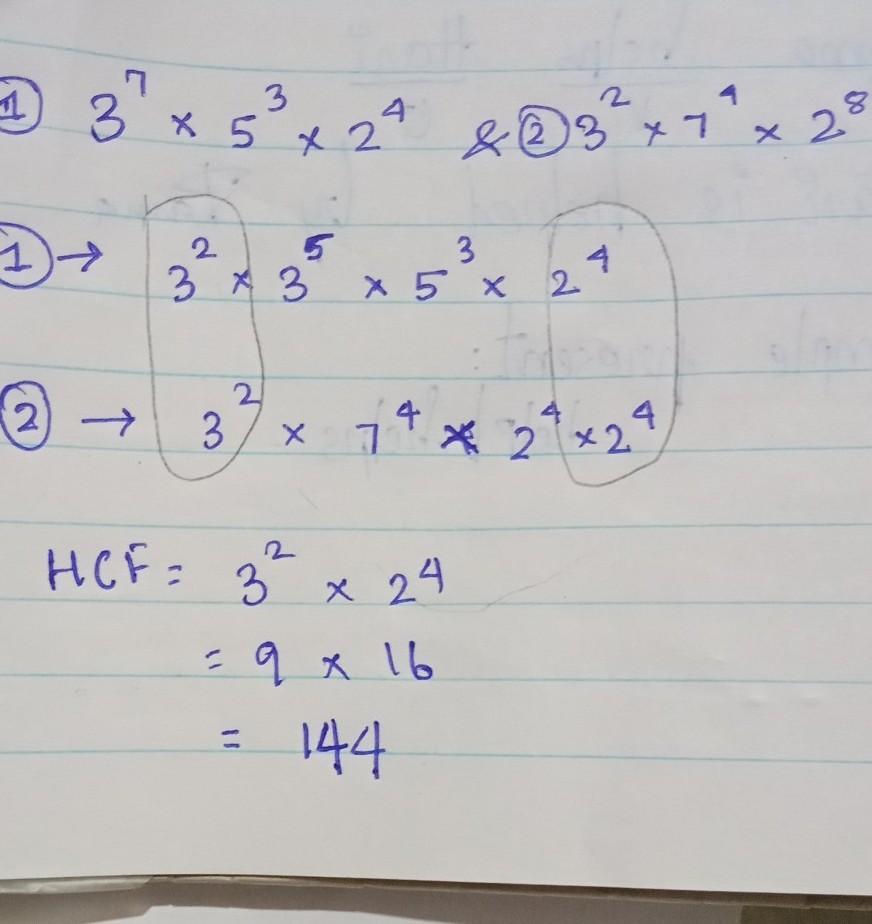 ① 3⁷ × 5³ × 2⁴ & ② 3² × 7⁴ × 2⁸
① → 3² × 3⁵ × 5³ × 2⁴
② → 3² × 7⁴ × 2⁴ × 2⁴
HCF = 3² × 2⁴
= 9 × 16
= 144